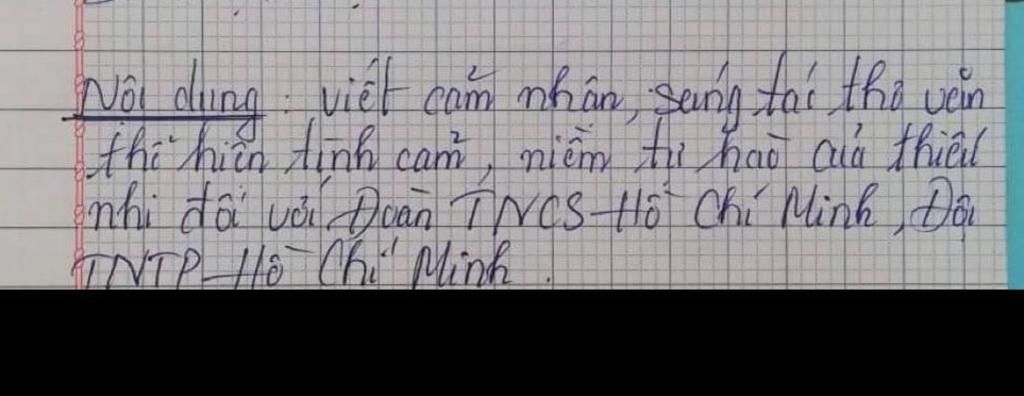 Nội dung: viết cảm nhận, sáng tác thơ văn
thể hiện tình cảm, niềm tự hào của thiếu
nhi đối với Đoàn TNCS Hồ Chí Minh, Đội
TNTP Hồ Chí Minh.